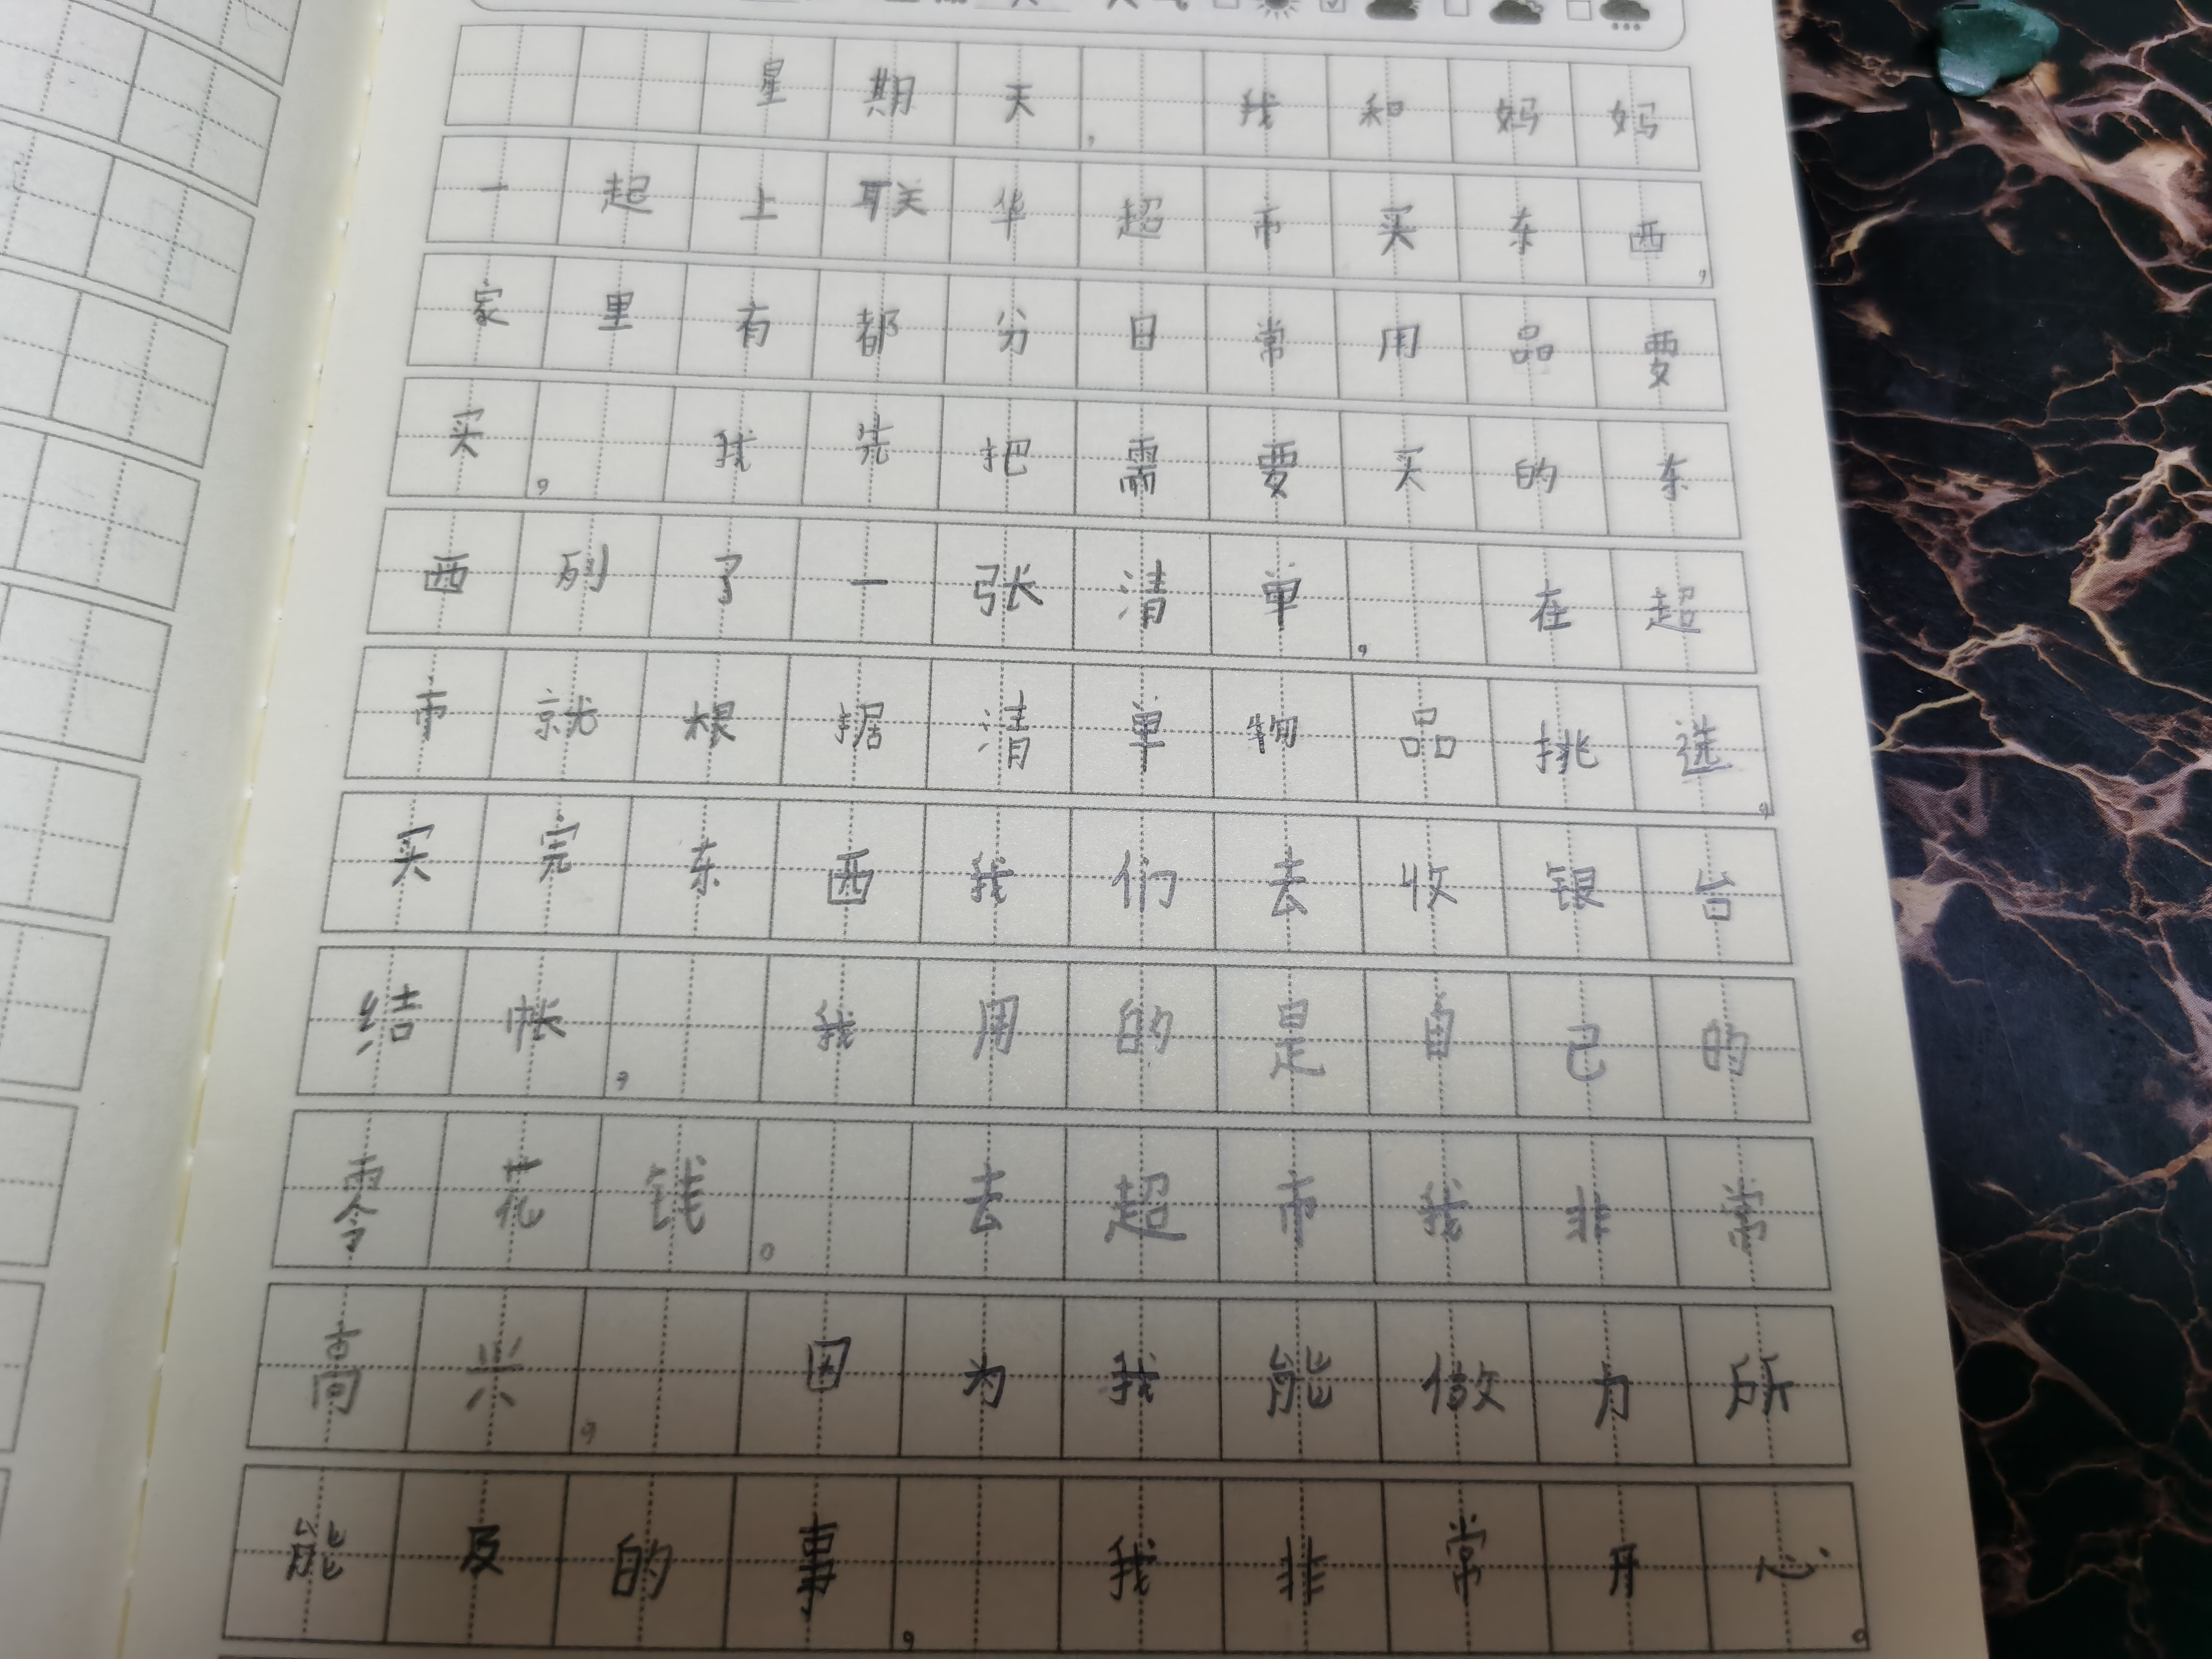 星期天，我和妈妈
一起上联华超市买东西，
家里有都分日常用品要
买，我先把需要买的东
西列了一张清单，在超
市就根据清单物品挑选，
买完东西我们去收银台
结帐，我用的是自己的
零花钱。去超市我非常
高兴，因为我能做力所
能及的事，我非常开心。